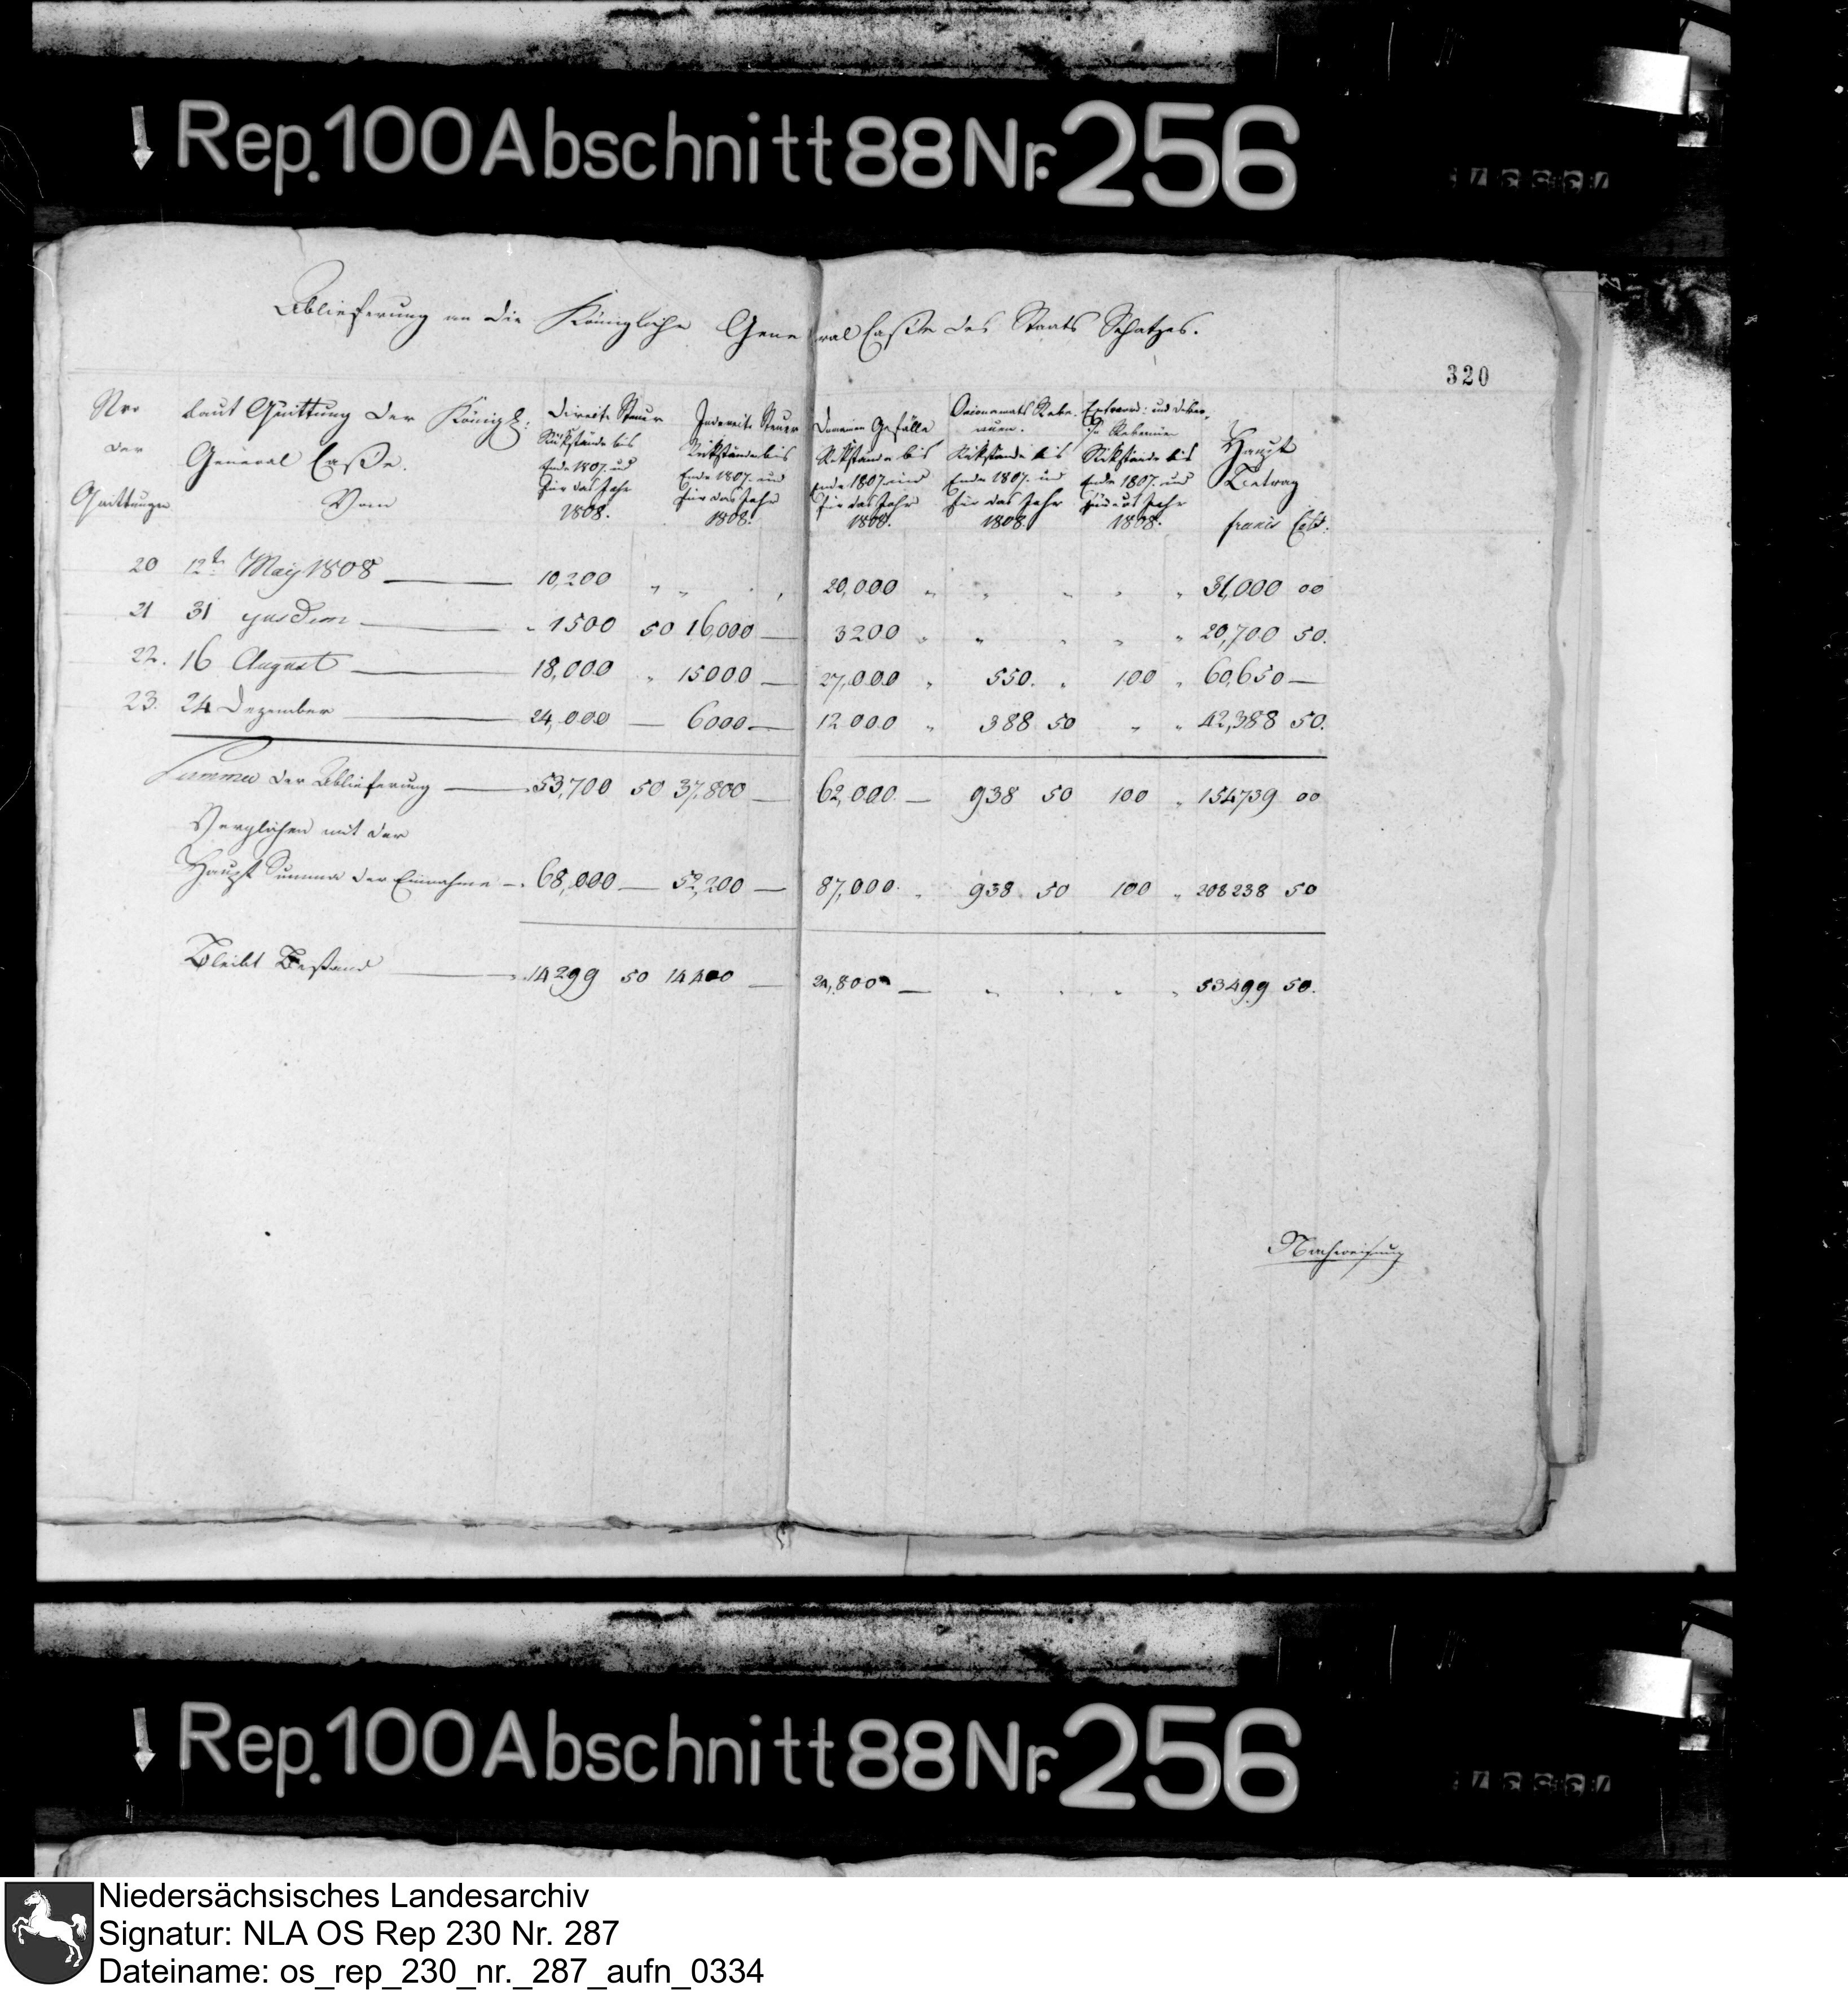 Rep. 100 Abschnitt 88 Nr. 256
Ablieferung an die Königliche General Caße des Staats Schatzes.
320
Nro der Quittungen
Laut Quittung der Königl: General Caße. Vom
Directe Steuer Rükstände bis Ende 1807. und für das Jahr 1808.
Indirecte Steuer Rükstände bis Ende 1807. und für das Jahr 1808.
Domainen Gefälle Rükstände bis Ende 1807 und für das Jahr 1808.
Rükstände bis Ende 1807. und für das Jahr 1808.
Extraord: und Rükstände bis Ende 1807. und für das Jahr 1808.
Haupt Betrag francs Cts:
20 12t May 1808 — 10,200 " " " " 20,000 " " " " " 31,000 00
21 31 ejusdem — 1500 50 16,000 — 3200 " " " " " 20,700 50.
22. 16 August — 18,000 " 15000 — 27,000 " 550. " 100 " 60,650 —
23. 24 Dezember — 24,000 — 6000 — 12000 " 388 50 " " 42,388 50.
Summa der Ablieferung — 53,700 50 37,800 — 62,000. — 938 50 100 " 154739 00
Verglichen mit der
Haupt Summa der Einnahme — 68,000 — 52,200 — 87,000. " 938 50 100 " 208238 50
Bleibt Bestand — 14299 50 14400 — — " " " " 53499 50.
Nachweisung
Rep. 100 Abschnitt 88 Nr. 256
Niedersächsisches Landesarchiv
Signatur: NLA OS Rep 230 Nr. 287
Dateiname: os_rep_230_nr._287_aufn_0334